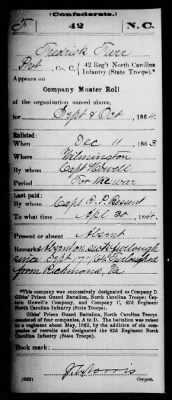 (Confederate.)
42 N.C.
Fredrick
Pvt, Co. C, 42 Reg't North Carolina
Infantry (State Troops).*
Appears on
Company Muster Roll
of the organization named above,
for Sept & Oct, 1864.
Enlisted:
When Dec 11, 1863.
Where Wilmington
By whom Capt Howell
Period For the war
Last paid:
By whom Capt
To what time Apl 30, 1864.
Present or absent Absent
Remarks: Absent on sick furlough
since Sept. 17/64. Furloughed
from Richmond, Va
*This company was successively designated as Company D,
Gibbs' Prison Guard Battalion, North Carolina Troops; Cap-
tain Howell's Company, and Company C, 42d Regiment North
Carolina Infantry (State Troops).
Gibbs' Prison Guard Battalion, North Carolina Troops,
consisted of four companies, A to D. The battalion was raised
to a regiment about May, 1862, by the addition of six com-
panies of recruits and designated the 42d Regiment North
Carolina Infantry (State Troops).
Book mark:
(642)
Copyist.